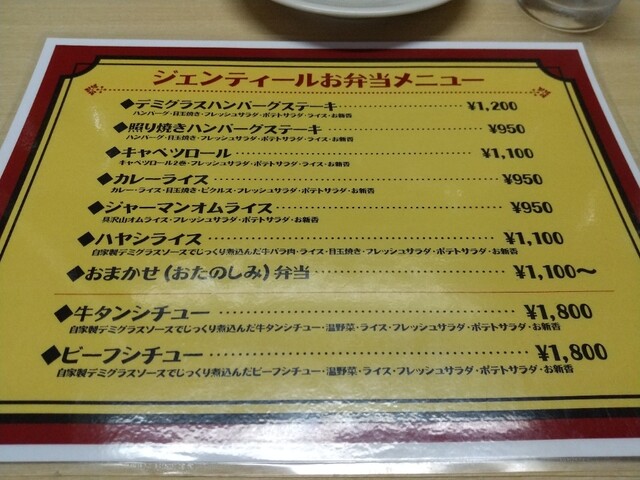 ジェンティールお弁当メニュー
◆デミグラスハンバーグステーキ ¥1,200
ハンバーグ・目玉焼き・フレッシュサラダ・ポテトサラダ・ライス・お新香
◆照り焼きハンバーグステーキ ¥950
ハンバーグ・目玉焼き・フレッシュサラダ・ポテトサラダ・ライス・お新香
◆キャベツロール ¥1,100
キャベツロール2巻・フレッシュサラダ・ポテトサラダ・ライス・お新香
◆カレーライス ¥950
カレー・ライス・目玉焼き・ピクルス・フレッシュサラダ・ポテトサラダ・お新香
◆ジャーマンオムライス ¥950
具沢山オムライス・フレッシュサラダ・ポテトサラダ・お新香
◆ハヤシライス ¥1,100
自家製デミグラスソースでじっくり煮込んだ牛バラ肉・ライス・目玉焼き・フレッシュサラダ・ポテトサラダ・お新香
◆おまかせ(おたのしみ)弁当 ¥1,100〜
◆牛タンシチュー ¥1,800
自家製デミグラスソースでじっくり煮込んだ牛タンシチュー・温野菜・ライス・フレッシュサラダ・ポテトサラダ・お新香
◆ビーフシチュー ¥1,800
自家製デミグラスソースでじっくり煮込んだビーフシチュー・温野菜・ライス・フレッシュサラダ・ポテトサラダ・お新香